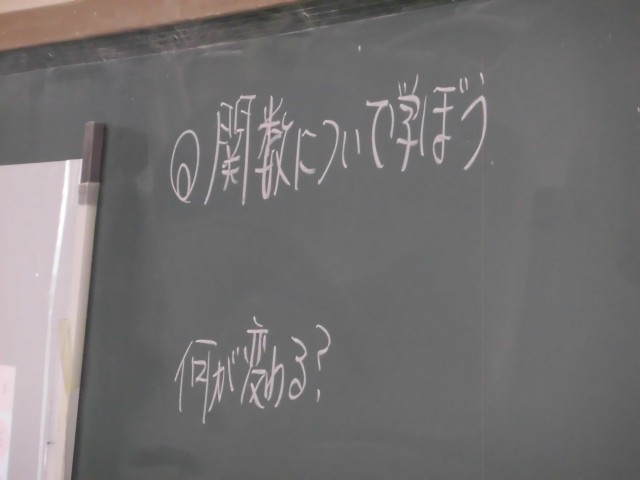 Q 関数について学ぼう
何が変わる?